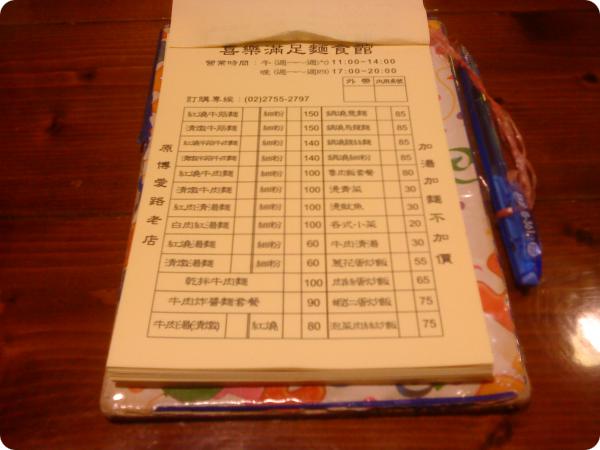 喜樂滿足麵食館
營業時間：午(週一~週六)11:00~14:00
晚(週一~週四)17:00~20:00
外帶 內用桌號
訂購專線：(02)2755-2797
原博愛路老店
加湯加麵不加價
紅燒牛筋麵 細粉 150 鍋燒意麵 85
清燉牛筋麵 細粉 150 鍋燒烏龍麵 85
紅燒牛筋牛肉麵 細粉 140 鍋燒雞絲麵 85
清燉牛筋牛肉麵 細粉 140 鍋燒細粉 85
紅燒牛肉麵 細粉 100 魯肉飯套餐 80
清燉牛肉麵 細粉 100 燙青菜 30
紅肉清湯麵 細粉 100 燙魷魚 30
白肉紅湯麵 細粉 100 各式小菜 20
紅燒湯麵 細粉 60 牛肉清湯 30
清燉湯麵 細粉 60 蔥花蛋炒飯 55
乾拌牛肉麵 100 肉絲蛋炒飯 65
牛肉炸醬麵套餐 90 蝦仁蛋炒飯 75
牛肉湯(清燉) 紅燒 80 泡菜肉絲炒飯 75